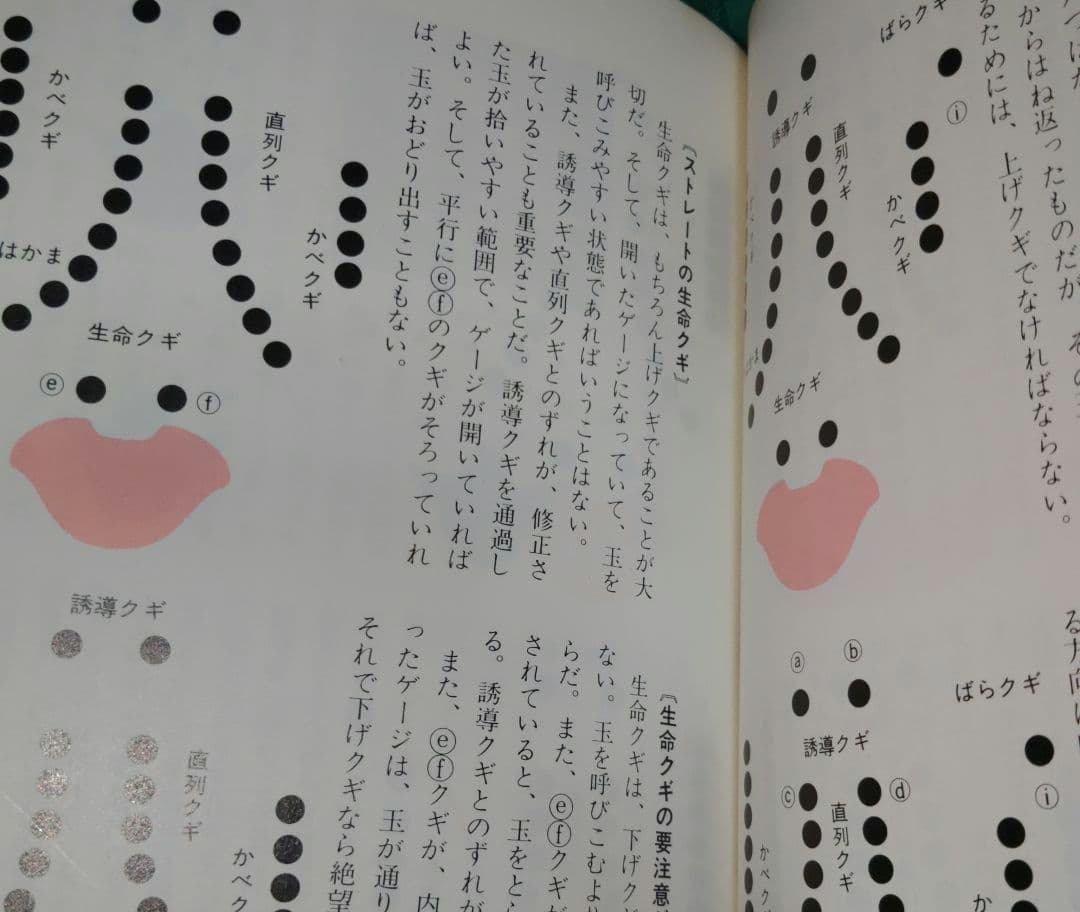 からはね返ったものだが、その
るためには、上げクギでなければならない。
ばらクギ
ⓘ
誘導クギ
直列クギ
かべクギ
生命クギ
ⓐ
ⓑ
ばらクギ
誘導クギ
ⓘ
ⓒ
ⓓ
直列クギ
かべク
か
〖ストレートの生命クギ〗
生命クギは、もちろん上げクギであることが大
切だ。そして、開いたゲージになっていて、玉を
呼びこみやすい状態であればいうことはない。
また、誘導クギや直列クギとのずれが、修正さ
れていることも重要なことだ。誘導クギを通過し
た玉が拾いやすい範囲で、ゲージが開いていれば
よい。そして、平行にⓔⓕのクギがそろっていれ
ば、玉がおどり出すこともない。
かべクギ
直列クギ
かべクギ
はかま
生命クギ
ⓔ
ⓕ
〖生命クギの要注意
生命クギは、下げク
ない。玉を呼びこむよ
らだ。また、ⓔⓕクギ
されていると、玉をと
る。誘導クギとのずれが
また、ⓔⓕクギが、内
ったゲージは、玉が通り
それで下げクギなら絶望
誘導クギ
直列クギ
かべク